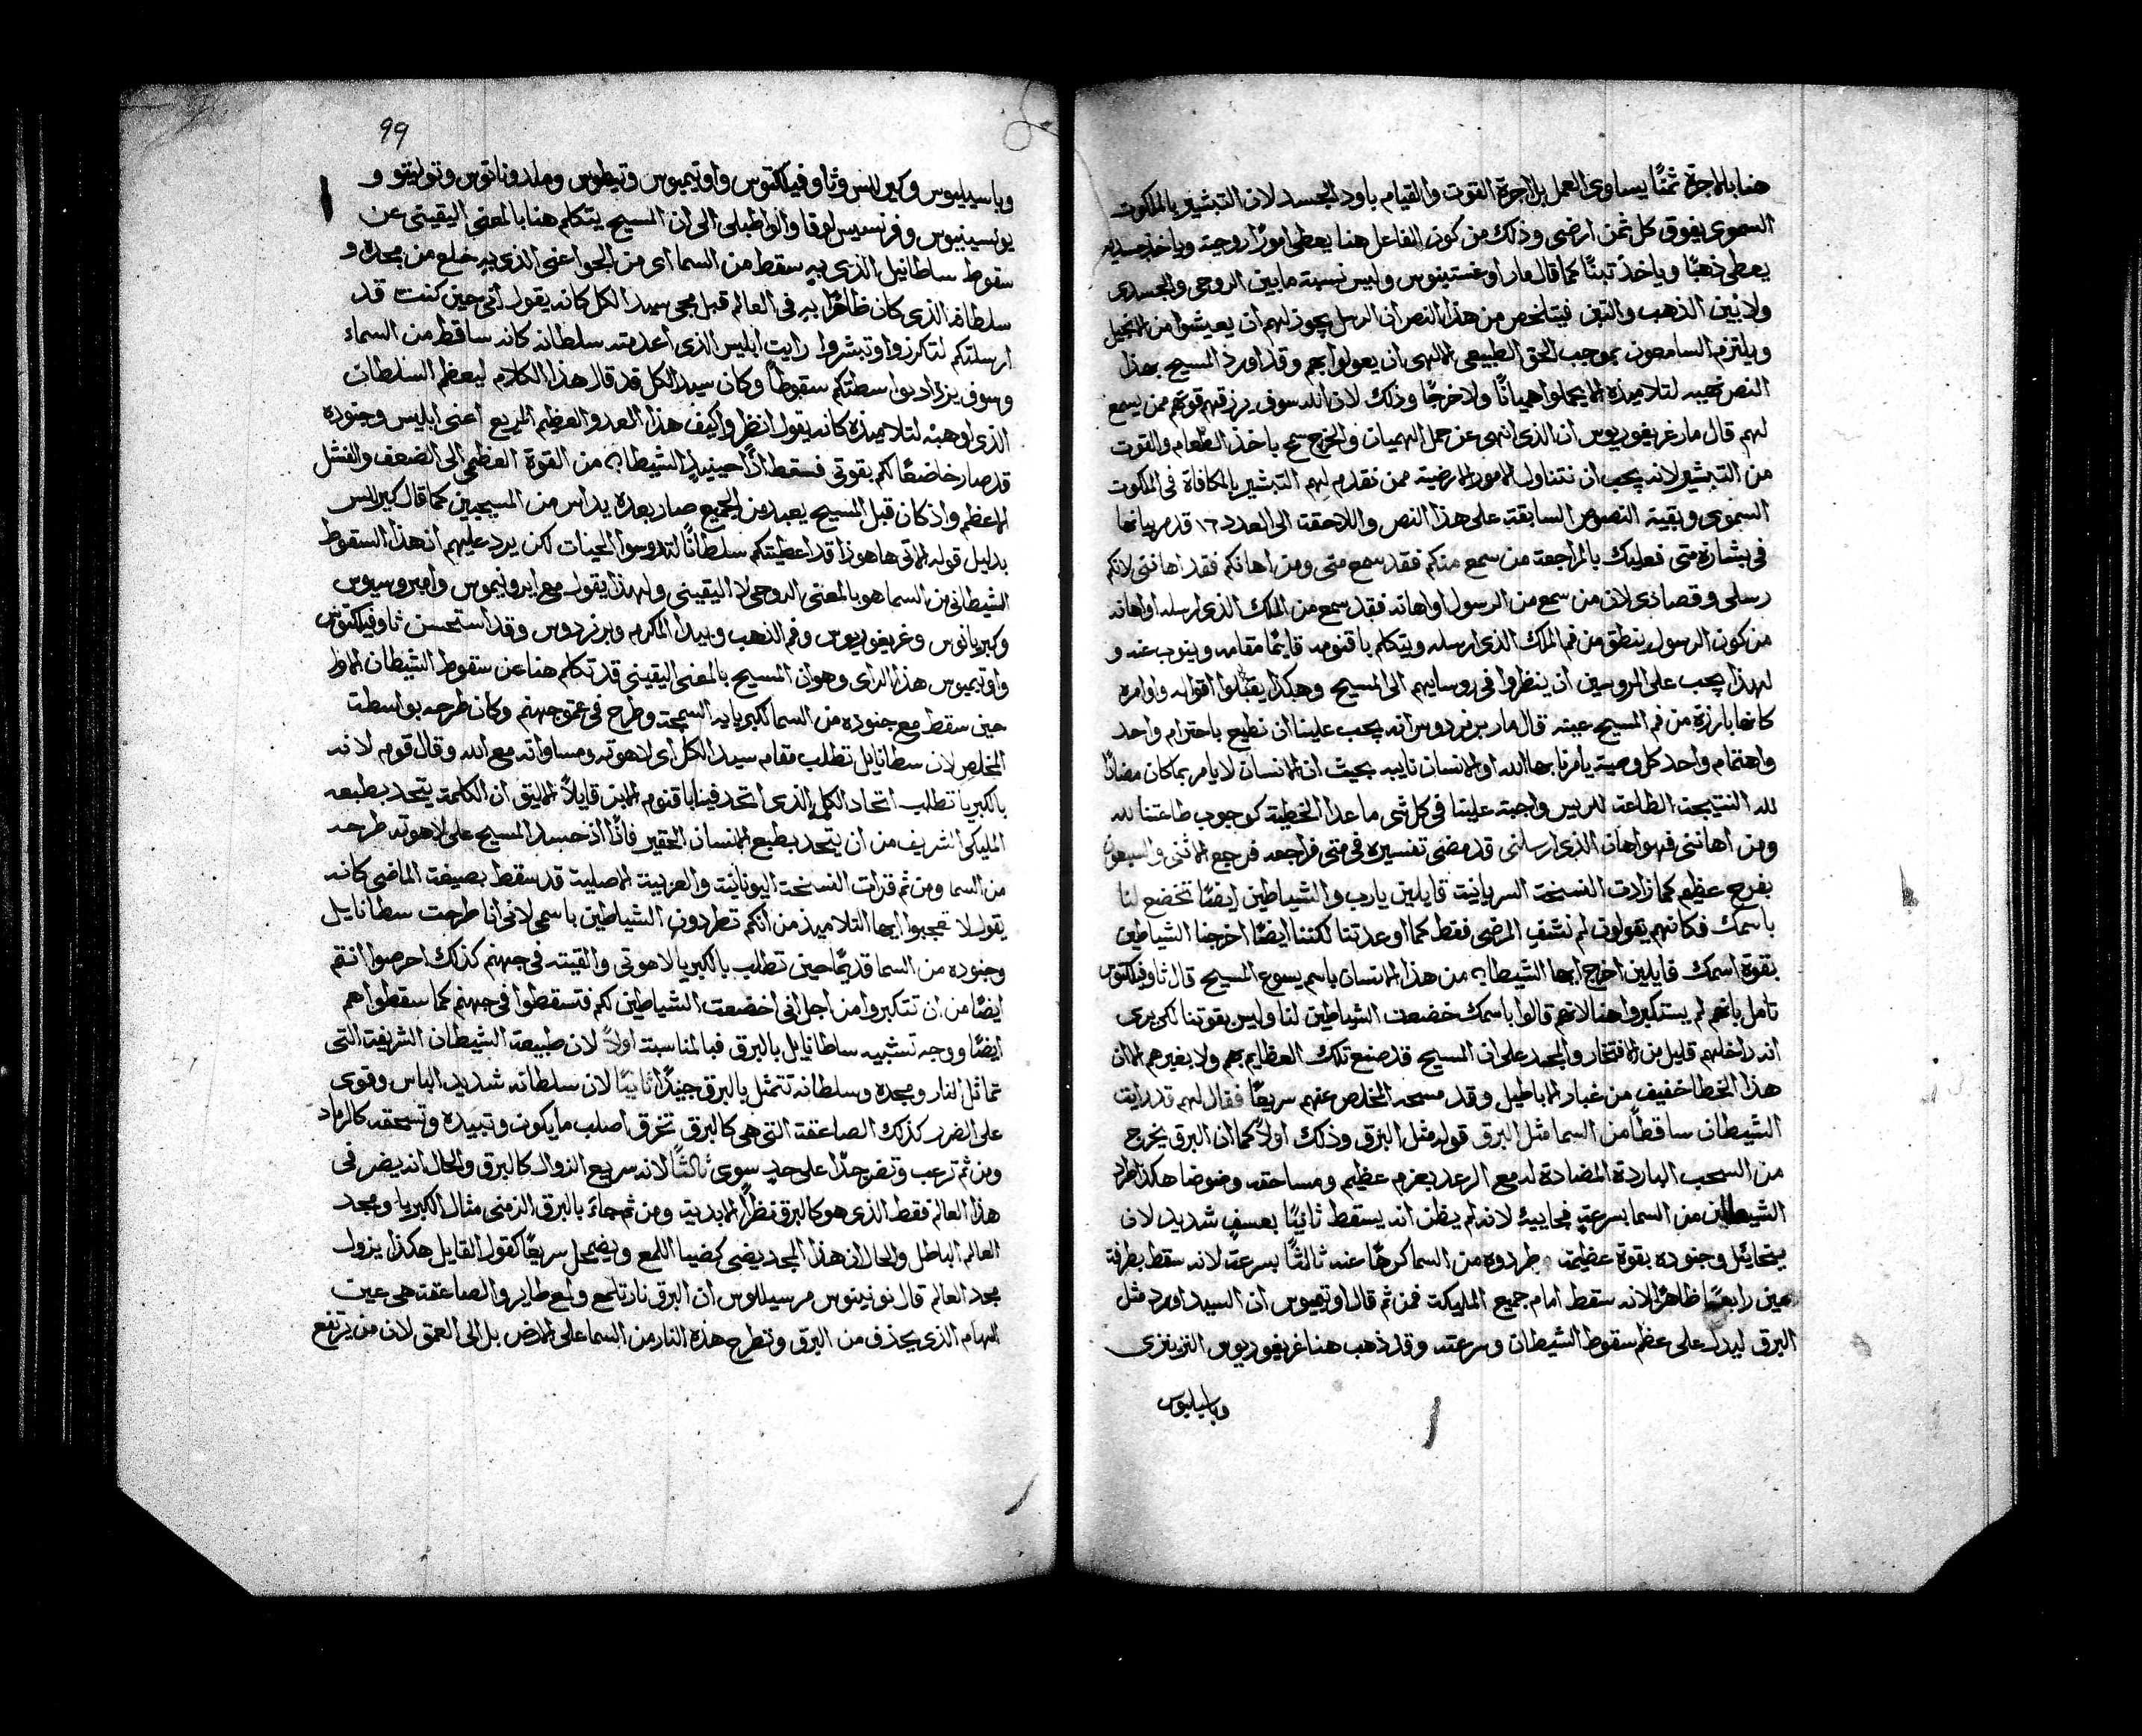 هنا بالاجرة ثمنًا يساوى العمل بل اجرة القوت والقيام باود الجسد لان التبشير بالملكوت
السموى يفوق كل ثمن ارضى وذلك من كون الفاعل هنا يعطى امورًا روحية وياخذ جسديه
يعطى ذهبًا وياخذ تبنًا كما قال مار اوغستينوس وليس نسبة ما بين الروحى والجسدى
ولا بين الذهب والتبن فيتلخص من هذا النص ان الرسل يجوز لهم ان يعيشوا من الانجيل
ويلتزم السامعون بموجب الحق الطبيعى الالهى ان يعولوا بهم وقد اورد المسيح بهذا
النص نحيبه لتلاميذه الا يحملوا هميانًا ولا خرجًا وذلك لان الله سوف يرزقهم قوتهم ممن يسمع
لهم قال مار غريغوريوس ان الذى انهى عن حمل الهميان والخرج سمح باخذ الطعام والقوت
من التبشير لانه يجب ان نتناول الامور الارضية ممن نقدم لهم التبشير بالمكافاة فى الملكوت
السموى وبقية النصوص السابقة على هذا النص واللاحقة الى العدد ١٦ قد مر بيانها
فى بشارة متى فعليك بالمراجعة من سمع منكم فقد سمع منى ومن اهانكم فقد اهاننى لانكم
رسلى وقصادى لان من سمع من الرسول او اهانه فقد سمع من الملك الذى ارسله او اهانه
من كون الرسول ينطق من فم الملك الذى ارسله ويتكلم باقنومه قايمًا مقامه وينوب عنه و
لهذا يجب على المروسين ان ينظروا فى روسايهم الى المسيح وهكذا يقبلوا اقواله واوامره
كانها بارزة من فم المسيح عينه قال مار برنردوس انه يجب علينا ان نطيع باحترام واحد
واهتمام واحد كل وصية يامرنا بها الله او الانسان نايبه بحيث ان الانسان لا يامر بما كان مضادًا
لله النتيجة الطاعة للريس واجبة علينا فى كل شى ما عدا الخطية كوجوب طاعتنا لله
ومن اهاننى فهو اهان الذى ارسلنى قد مضى تفسيره فى متى فراجعه فرجع الاثنى والسبعون
بفرح عظيم كما زادت النسخة السريانية قايلين يارب والشياطين ايضًا تخضع لنا
باسمك فكانهم يقولون لم نشفِ المرضى فقط كما اوعدتنا لكننا ايضًا اخرجنا الشياطين
بقوة اسمك قايلين اخرج ايها الشيطان من هذا الانسان باسم يسوع المسيح قال ثاوفيلكتوس
تامل بانهم لم يستكبروا هنا لانهم قالوا باسمك خضعت الشياطين لنا وليس بقوتنا لكن يرى
انه داخلهم قليل من الافتخار والمجد على ان المسيح قد صنع تلك العظايم بهم ولا بغيرهم الا ان
هذا الخطا خفيف من غبار الاباطيل وقد مسحه المخلص عنهم سريعًا فقال لهم قد رايت
الشيطان ساقطًا من السما مثل البرق قوله مثل البرق وذلك اولًا كما ان البرق يخرج
من السحب الباردة المضادة له مع الرعد بعزم عظيم ومساحقة وضوضا هكذا طرد
الشيطان من السما بسرعة فجاييه لانه لم يظن انه يسقط ثانيًا بعسفٍ شديد لان
ميخائيل وجنوده بقوة عظيمة طردوه من السما كرهًا عنه ثالثًا بسرعة لانه سقط بطرفة
عين رابعًا ظاهرًا لانه سقط امام جميع المليكة فمن ثم قال اوتيميوس ان السيد اورد مثل
البرق ليدل على عظم سقوط الشيطان وسرعته وقد ذهب هنا غريغوريوس النزينزى
وباسيليوس
99
وباسيليوس وكيرللس وثاوفيلكتوس واوتيميوس وتيطوس وملدوناتوس وتوليتوو و
يونسينيوس وفرنسيس لوقا والواطبلى الى ان المسيح يتكلم هنا بالمعنى اليقينى عن
سقوط ساطانيل الذى به سقط من السما اى من الجو اعنى الذى به خلع من مجده و
سلطانه الذى كان ظاهرًا به فى العالم قبل مجى سيد الكل كانه يقول انى حين كنت قد
ارسلتكم لتكرزوا وتبشروا رايت ابليس الذى اعدمته سلطانه كانه ساقط من السماء
وسوف يزداد بواسطتكم سقوطًا وكان سيد الكل قد قال هذا الكلام ليعظم السلطان
الذى اوهبه لتلاميذه كانه يقول انظروا كيف هذا العدو العظيم المريع اعنى ابليس وجنوده
قد صار خاضعًا لكم بقوتى فسقط اذًا حينيذٍ الشيطان من القوة العظمى الى الضعف والفشل
الاعظم واذ كان قبل المسيح يعبد من الجميع صار بعده يداس من المسيحيين كما قال كيرللس
بدليل قوله الاتى هاهوذا قد اعطيتكم سلطانًا لتدوسوا الحيات لكن يرد عليهم ان هذا السقوط
الشيطانى من السما هو بالمعنى الروحى لا اليقينى ولهذا يقول مع ايرونيموس وامبروسيوس
وكبريانوس وغريغوريوس وفم الذهب وبيدا المكرم وبرنردوس وقد استحسن ثاوفيلكتوس
واوتيميوس هذا الراى وهو ان المسيح بالمعنى اليقينى قد تكلم هنا عن سقوط الشيطان الاول
حين سقط مع جنوده من السما لكبريايه السمجة وطرح فى عمق جهنم وكان طرحه بواسطة
المخلص لان سطانايل تطلب مقام سيد الكل اى لاهوته ومساواته مع الله وقال قوم لانه
بالكبريا تطلب اتحاد الكلمة الذى اتحد فينا باقنوم الابن قايلًا الاليق ان الكلمة يتحد بطبعه
المليكى الشريف من ان يتحد بطبع الانسان الحقير فاذًا اذ حسد المسيح على لاهوته طرحه
من السما ومن ثم قرات النسخة اليونانية والعربية الاصلية قد سقط بصيغة الماضى كانه
يقول لا تعجبوا ايها التلاميذ من انكم تطردون الشياطين باسمى لانى انا طرحت سطانايل
وجنوده من السما قديمًا حين تطلب بالكبريا لاهوتى والقيته فى جهنم كذلك احرصوا انتم
ايضًا من ان تتكبروا من اجل انى اخضعت الشياطين لكم فتسقطوا فى جهنم كما سقطوا هم
ايضًا ووجه تشبيه ساطانايل بالبرق فبالمناسبة اولًا لان طبيعة الشيطان الشريفة التى
تماثل النار ومجده وسلطانه تتمثل بالبرق جيدًا ثانيًا لان سلطانه شديد الباس وقوى
على الضرر كذلك الصاعقة التى هى كالبرق تخرق اصلب ما يكون وتبيده وتسحقه كالرماد
ومن ثم ترعب وتضر جدًا على حدٍ سوى ثالثًا لانه سريع الزوال كالبرق والحال انه يضر فى
هذا العالم فقط الذى هو كالبرق نظرًا للابدية ومن ثم جاء بالبرق الزمنى مثال الكبريا ومجد
العالم الباطل والحال ان هذا المجد يضى كضيا اللمع ويضمحل سريعًا كقول القايل هكذا يزول
مجد العالم قال نونينوس مرسيللوس ان البرق نار تلمع ولمع طاير والصاعقة هى عين
السهام الذى يحذف من البرق وتطرح هذه النار من السما على الارض بل الى العمق لان من يرتفع